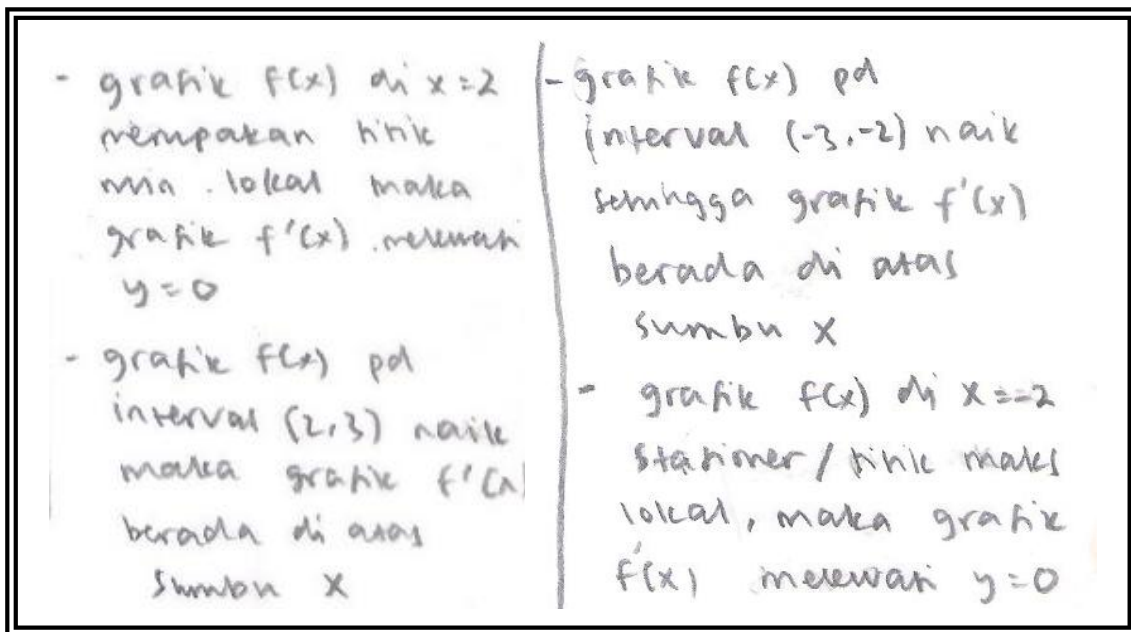 - grafik f(x) di x=2
merupakan titik
min. lokal maka
grafik f'(x) melewati
y=0
- grafik f(x) pd
interval (2,3) naik
maka grafik f'(x)
berada di atas
sumbu x
- grafik f(x) pd
interval (-3,-2) naik
sehingga grafik f'(x)
berada di atas
sumbu x
- grafik f(x) di x=-2
stasioner/titik maks
lokal, maka grafik
f'(x) melewati y=0